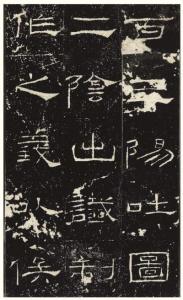 百三陽吐圖
二陰出讖制
作之義以俟